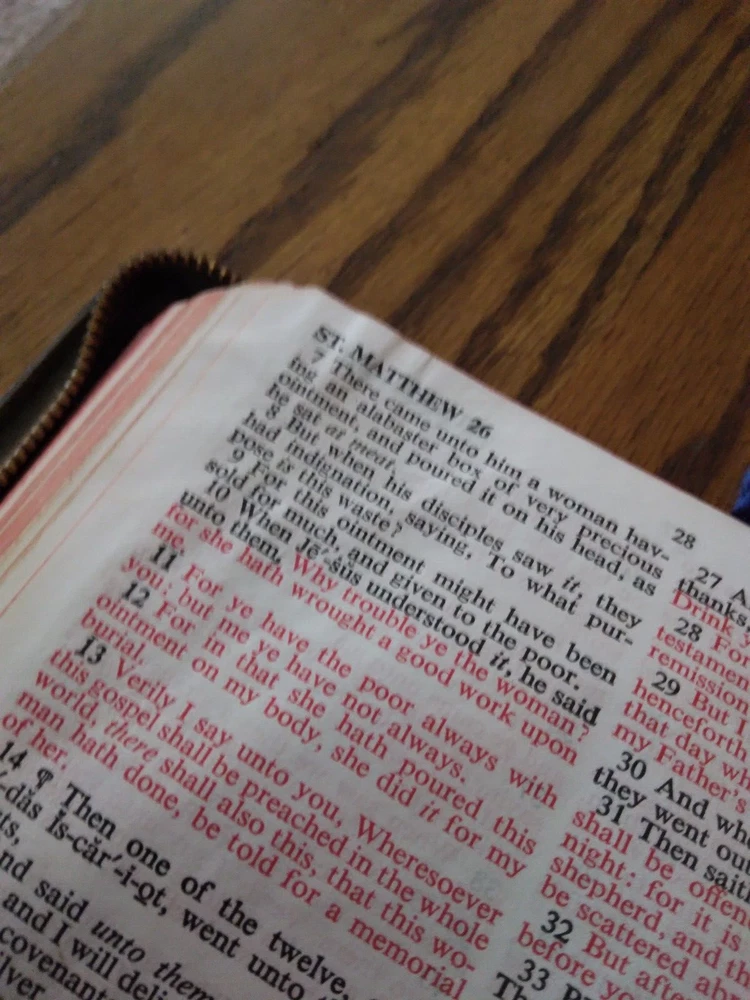 ST. MATTHEW 26
7 There came unto him a woman hav-
ing an alabaster box of very precious
ointment, and poured it on his head, as
he sat at meat.
8 But when his disciples saw it, they
had indignation, saying, To what pur-
pose is this waste?
9 For this ointment might have been
sold for much, and given to the poor.
10 When Jē´-ṡus understood it, he said
unto them, Why trouble ye the woman?
for she hath wrought a good work upon
me.
11 For ye have the poor always with
you; but me ye have not always.
12 For in that she hath poured this
ointment on my body, she did it for my
burial.
13 Verily I say unto you, Wheresoever
this gospel shall be preached in the whole
world, there shall also this, that this wo-
man hath done, be told for a memorial
of her.
14 ¶ Then one of the twelve,
-das Ĭs-căr´-i-ŏt, went unto
nd said unto them
and I will deli
covenant
28
27 A
thanks,
Drink
28 For
testamen
remission
29 But I
henceforth
that day wh
my Father's
30 And whe
they went ou
31 Then sait
shall be offen
night: for it is
shepherd, and th
be scattered ab
32 But afte
before yo
33
Th